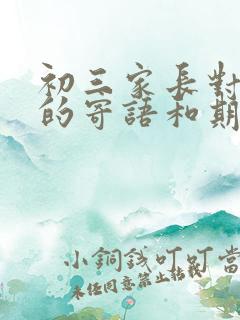 初三家長對
的寄語和期
小銅錢叮叮當
未任同意禁止轉載